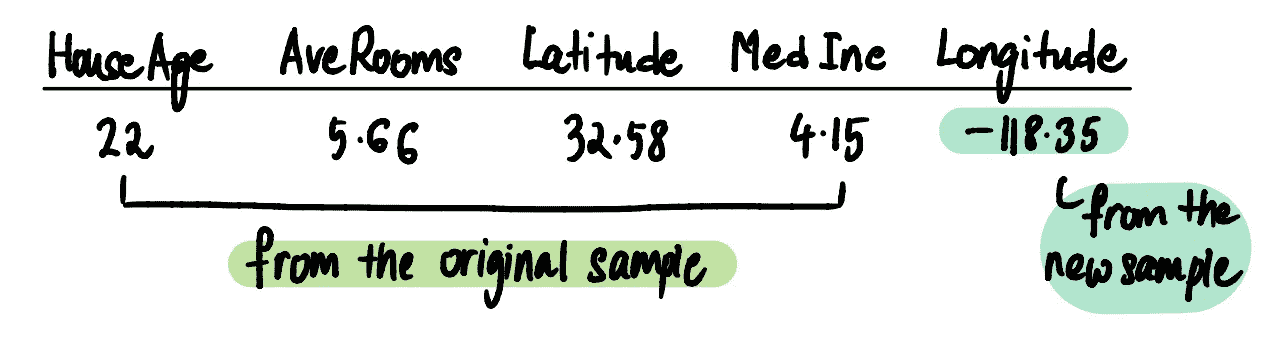 HouseAge AveRooms Latitude MedInc Longitude
22 5.66 32.58 4.15 -118.35
from the original sample
from the
new sample